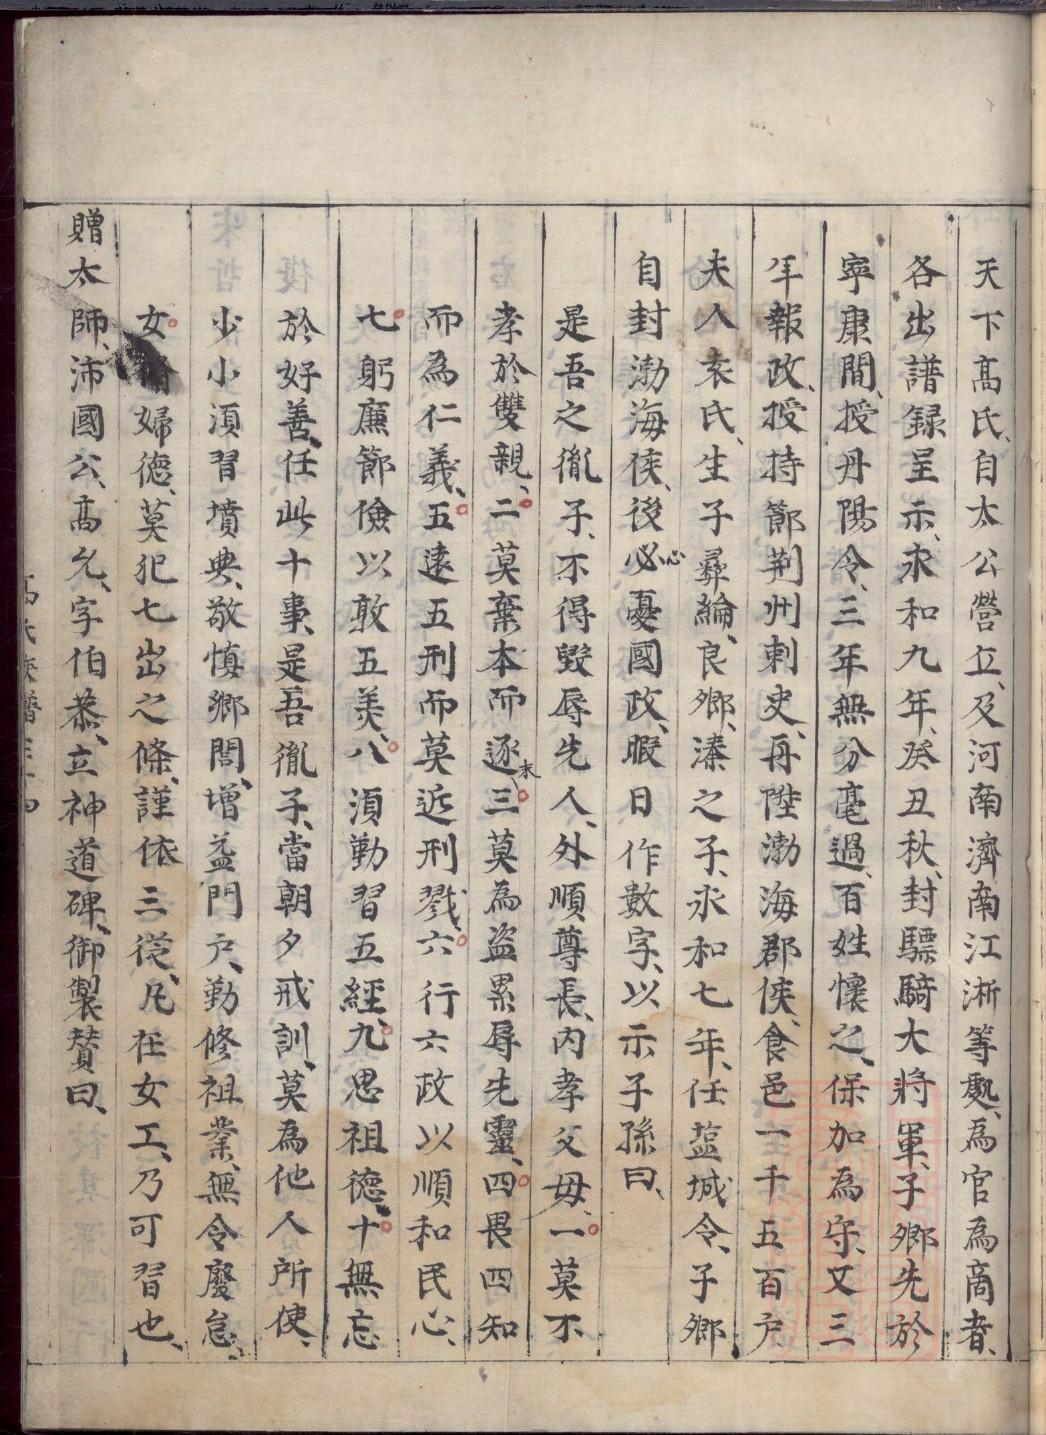 天下高氏、自太公營立、及河南濟南江淅等處、為官為商者、
各出譜録呈示、永和九年、癸丑秋、封驃騎大將軍、子鄉先於
寧康間、授丹陽令、三年無分毫過、百姓懷之、保加為守、又三
年報政、授持節荆州刺史、再陞渤海郡侯、食邑一千五百户
夫人袁氏、生子彛綸、良鄉、溱之子、永和七年、任塩城令、子鄉
自封渤海侯、後必心憂國政、暇日作數字、以示子孫曰、
是吾之胤子、不得毀辱先人、外順尊長、内孝父母、一莫不
孝於雙親、二莫棄本而逐末三莫為盗累辱先靈、四畏四知
而為仁義、五遠五刑而莫近刑戮、六行六政以順和民心、
七躬廉節儉以敦五美、八須勤習五經、九思祖德、十無忘
於好善、任此十事、是吾胤子、當朝夕戒訓、莫為他人所使、
少小須習墳典、敬慎鄉閭、增益門户、勤修祖業、無令廢怠、
女 婦德、莫犯七出之條、謹依三從、凡在女工、乃可習也、
贈太師、沛國公、高允、字伯恭、立神道碑、御製贊曰、